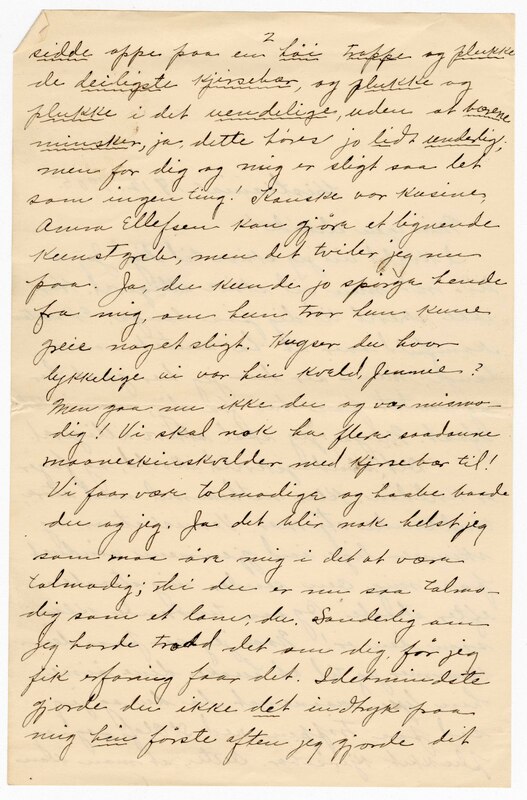 2
sidde oppe paa en høi trappe og plukke
de deiligste kjirsebær, og plukke og
plukke i det uendelige, uden at
minsker, ja, dette høres jo lidt underlig,
men for dig og mig er sligt saa let
som ingen ting! Kanske vor kusine,
Anna Ellefsen kan gjøre et lignende
kunstgreb, men det tviler jeg nu
paa. Ja, du kunde jo spørge hende
fra mig, om hun tror hun kunne
greie noget sligt. Husser du hvor
lykkelige vi var hin kveld, Jennie?
Men gaa nu ikke du og vær mismo-
dig! Vi skal nok ha flere saadanne
maaneskinskvelder med kjirsebær til!
Vi faar være tolmodige og haabe baade
du og jeg. Ja det blir nok helst jeg
som maa øve mig i det at være
tolmodig; thi du er nu saa tolmo-
dig som et lam, du. Sanderlig om
jeg havde trodd det om dig før jeg
fik erfaring faar det. Idetmindste
gjorde du ikke dét indtryk paa
mig hin første aften jeg gjorde dit